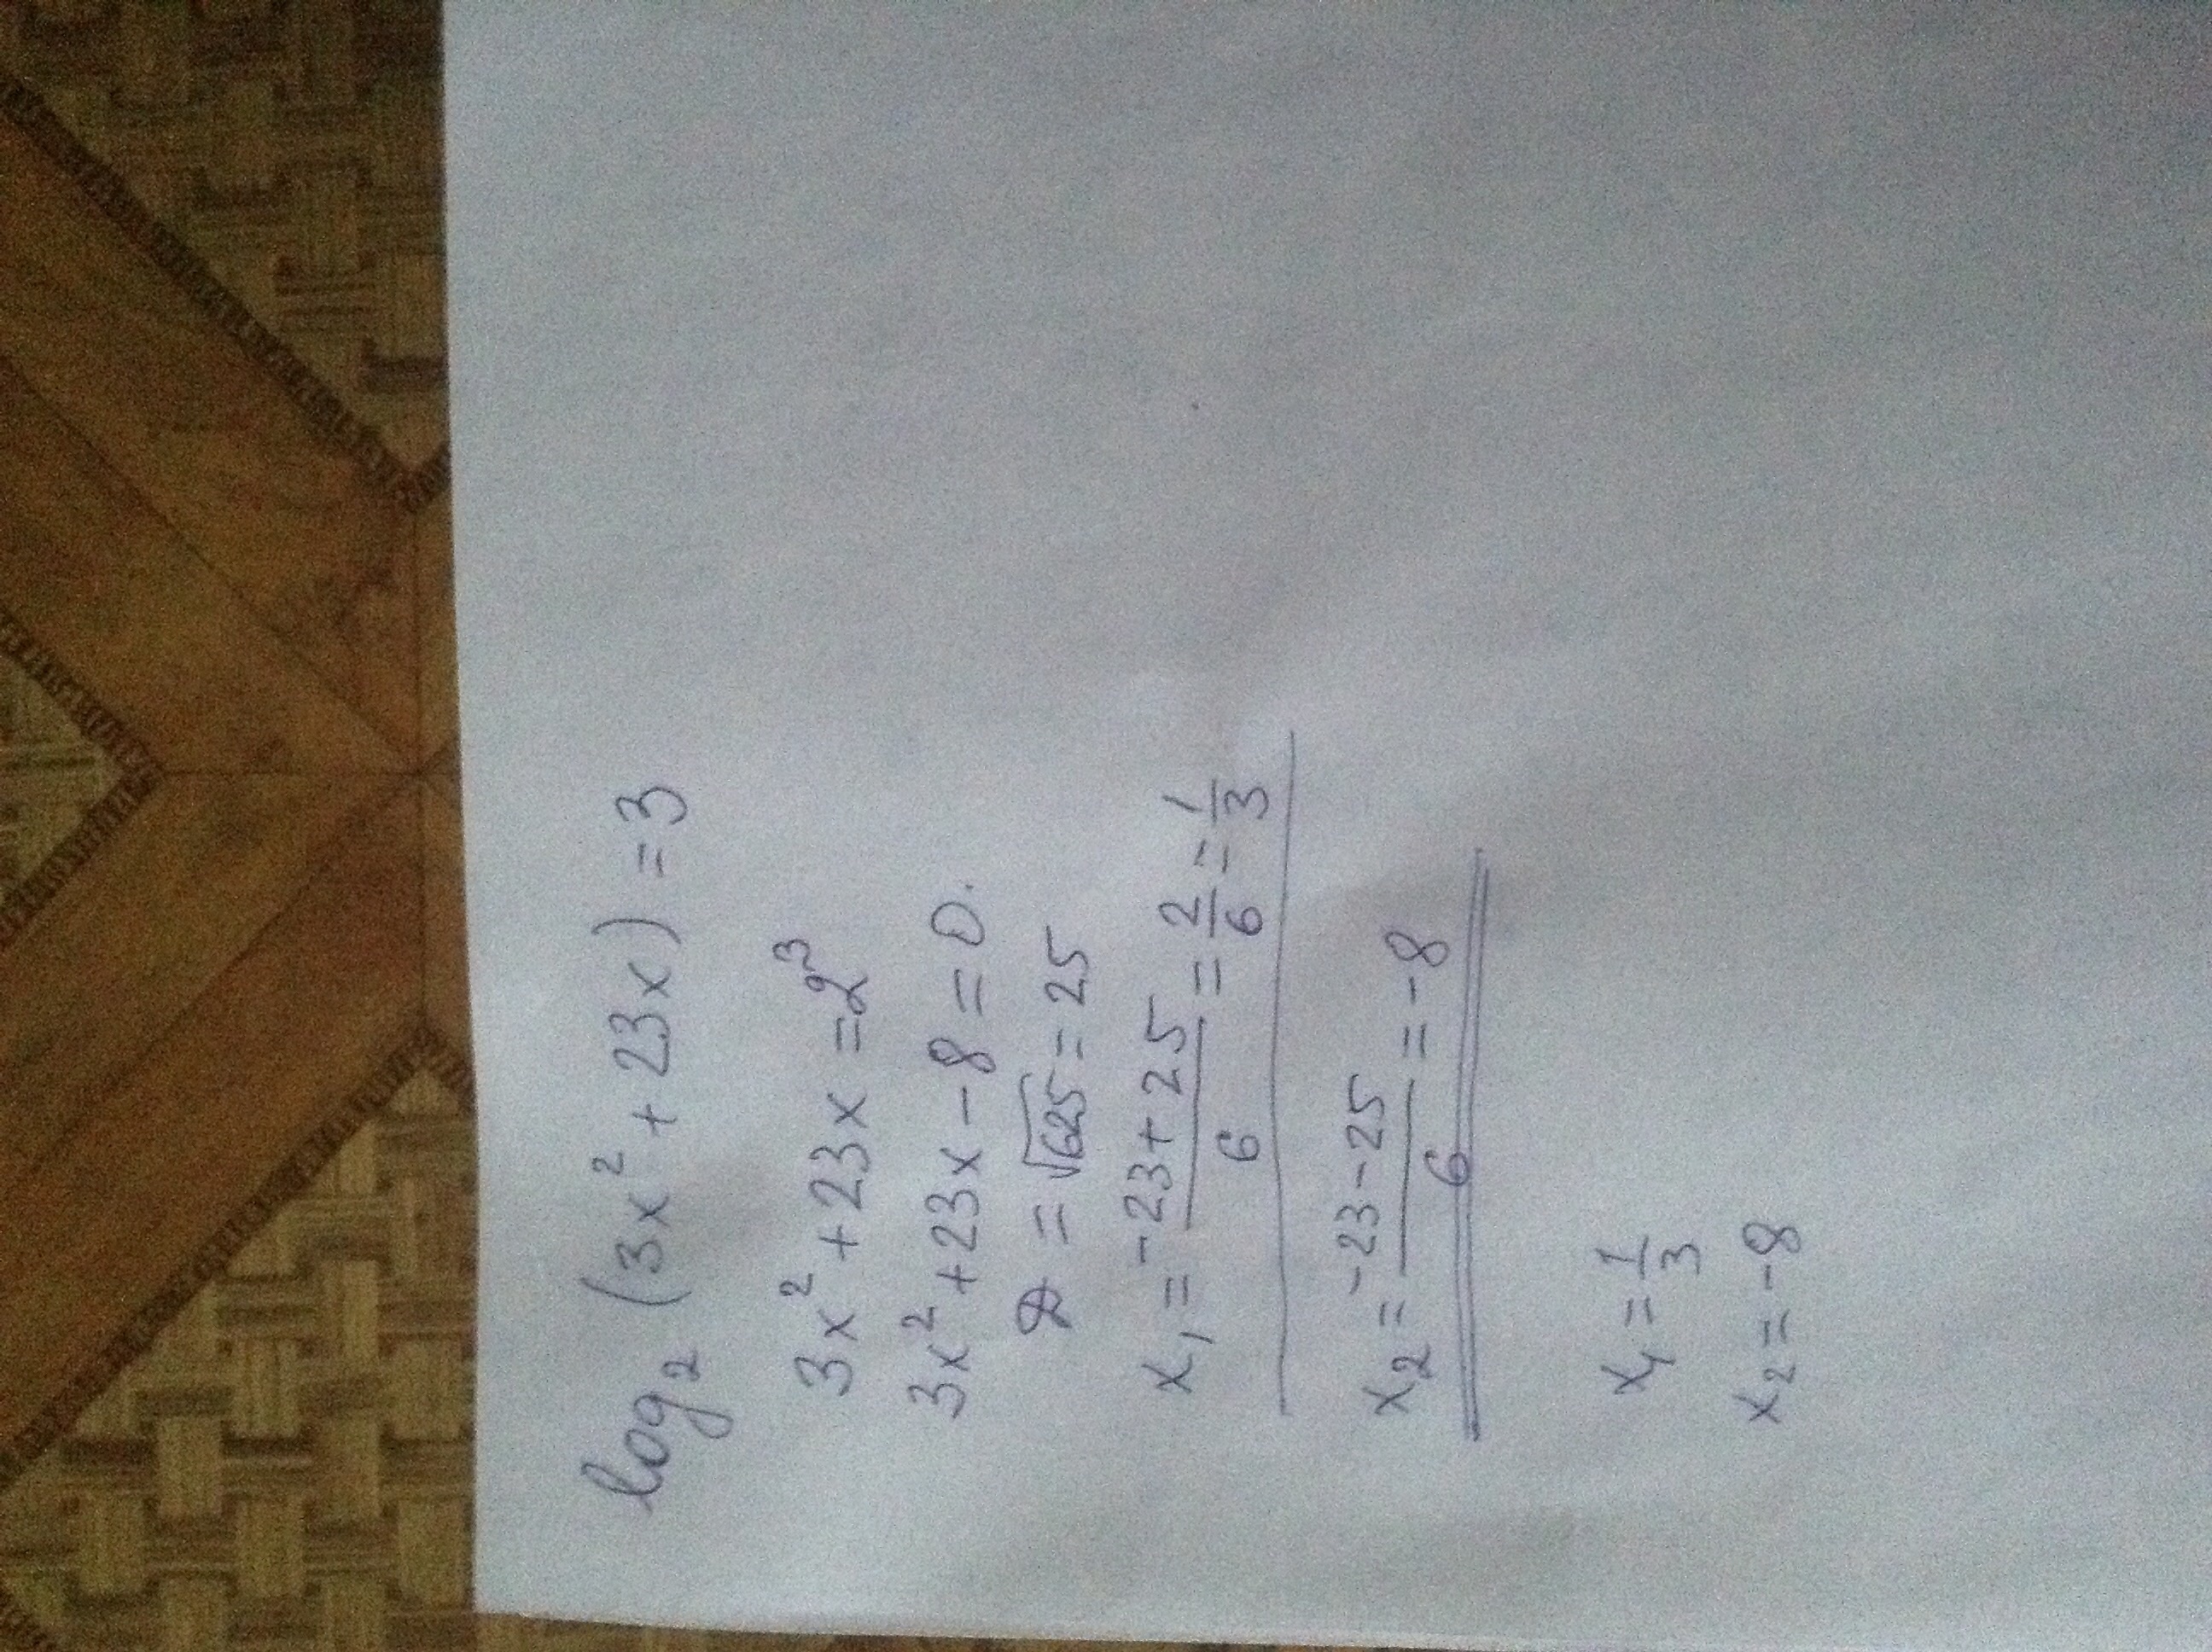 log₂ (3x² + 23x) = 3
3x² + 23x = 2³
3x² + 23x - 8 = 0.
D = √625 = 25
x₁ = (-23 + 25)/6 = 2/6 = 1/3
x₂ = (-23 - 25)/6 = -8
x₁ = 1/3
x₂ = -8